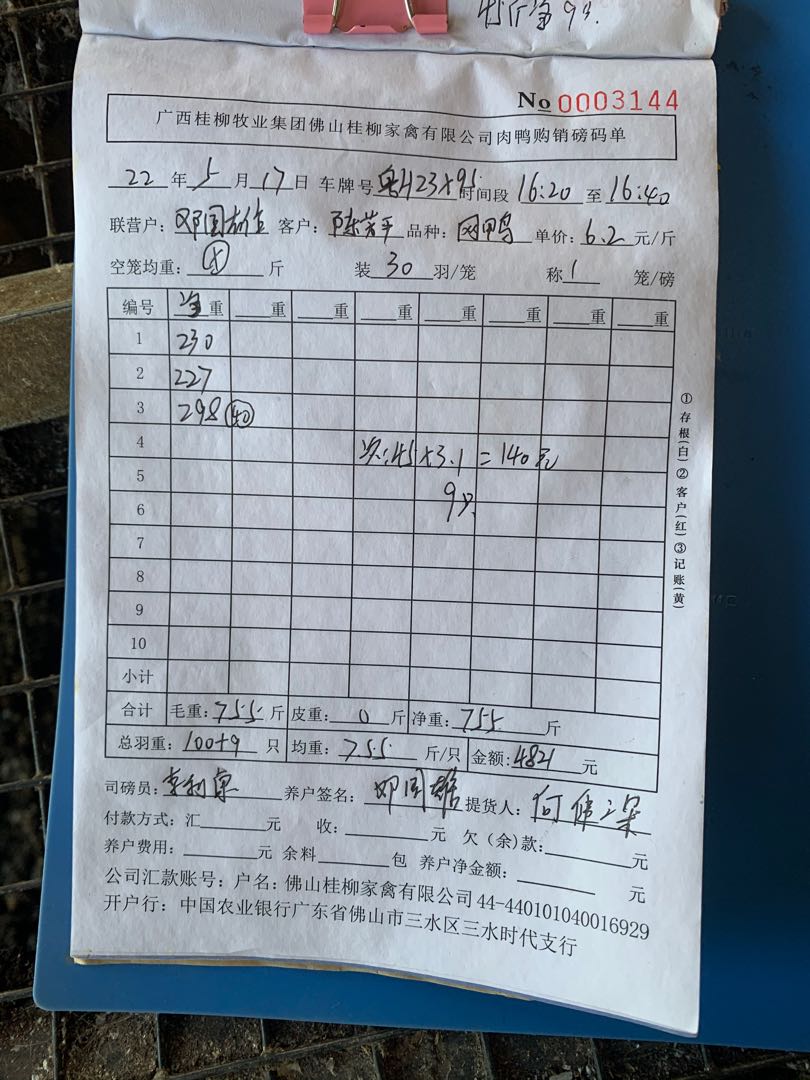 45斤 9只
No 0003144
广西桂柳牧业集团佛山桂柳家禽有限公司肉鸭购销磅码单
22 年 5 月 17 日 车牌号 粤H23X95 时间段 16:20 至 16:40
联营户: 邓国雄 客户: 陈芳平 品种: 网甲鸭 单价: 6.2 元/斤
空笼均重: 斤 装 30 羽/笼 称 1 笼/磅
编号 净重 重 重 重 重 重 重 重
1 230
2 227
3 298 (40)
4 次:45×3.1=140元
5
6 9只
7
8
9
10
小计
合计 毛重: 755 斤 皮重: 0 斤 净重: 755 斤
总羽重: 100+9 只 均重: 7.55 斤/只 金额: 4821 元
司磅员: 李利 养户签名: 邓国雄 提货人: 何伟
付款方式: 汇 元 收: 元 欠(余)款: 元
养户费用: 元 余料 包 养户净金额: 元
公司汇款账号: 户名: 佛山桂柳家禽有限公司 44-440101040016929
开户行: 中国农业银行广东省佛山市三水区三水时代支行
①存根(白)②客户(红)③记账(黄)